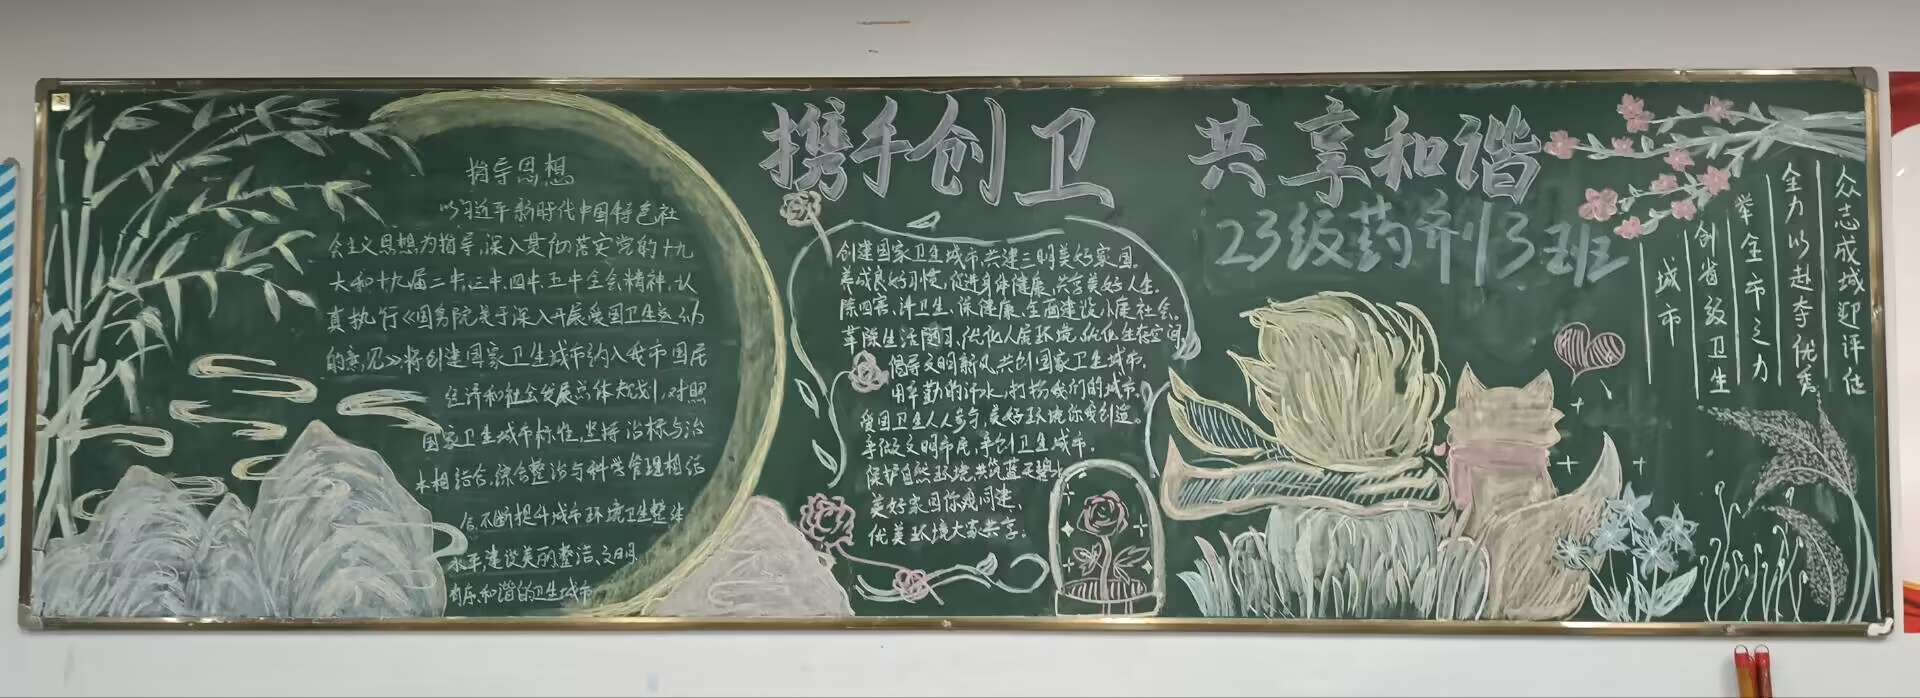 携手创卫 共享和谐
23级药剂13班
指导思想
以习近平新时代中国特色社
会主义思想为指导,深入贯彻落实党的十九
大和十九届二中,三中,四中,五中全会精神,认
真执行《国务院关于深入开展爱国卫生运动
的意见》,将创建国家卫生城市纳入我市国民
经济和社会发展总体规划,对照
国家卫生城市标准,坚持治标与治
本相结合,综合整治与科学管理相结
合,不断提升城市环境卫生整体
水平,建设美丽整洁、文明
有序、和谐的卫生城市
创建国家卫生城市,共建三明美好家园。
养成良好习惯,促进身体健康,共享美好人生。
除四害,讲卫生,保健康,全面建设小康社会。
革除生活陋习,优化人居环境,优化生态空间,
倡导文明新风,共创国家卫生城市。
用辛勤的汗水,打扮我们的城市。
爱国卫生人人参与,美好环境你我创造。
争做文明市民,争创卫生城市。
保护自然环境,共筑蓝天碧水
美好家园你我同建,
优美环境大家共享。
众志成城迎评估
全力以赴夺优秀
举全市之力
创省级卫生
城市